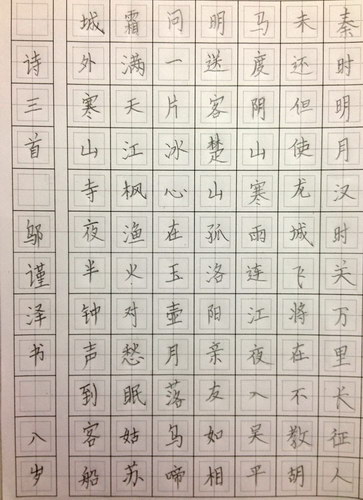 秦时明月汉时关万里长征人
未还但使龙城飞将在不教胡
马度阴山寒雨连江夜入吴平
明送客楚山孤洛阳亲友如相
问一片冰心在玉壶月落乌啼
霜满天江枫渔火对愁眠姑苏
城外寒山寺夜半钟声到客船
诗三首 邬谨泽书 八岁